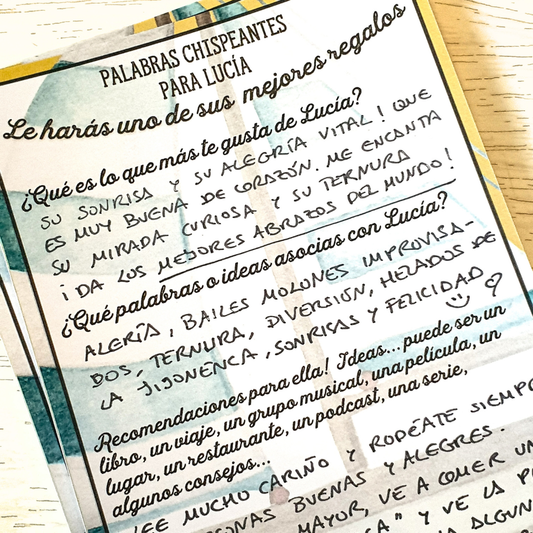 PALABRAS CHISPEANTES
PARA LUCÍA
Le harás uno de sus mejores regalos
¿Qué es lo que más te gusta de Lucía?
SU SONRISA Y SU ALEGRÍA VITAL! QUE
ES MUY BUENA DE CORAZÓN. ME ENCANTA
SU MIRADA CURIOSA Y SU TERNURA
¡DA LOS MEJORES ABRAZOS DEL MUNDO!
¿Qué palabras o ideas asocias con Lucía?
ALERÍA, BAILES MOLONES IMPROVISA-
DOS, TERNURA, DIVERSIÓN, HELADOS DE
LA JIJONENCA, SONRISAS Y FELICIDAD
Recomendaciones para ella! Ideas... puede ser un
libro, un viaje, un grupo musical, una película, un
lugar, un restaurante, un podcast, una serie,
algunos consejos...
LEE MUCHO CARIÑO Y RODÉATE SIEMPR
SONAS BUENAS Y ALEGRES.
MAYOR, VE A COMER UN
" Y VE LA P
ALGUN